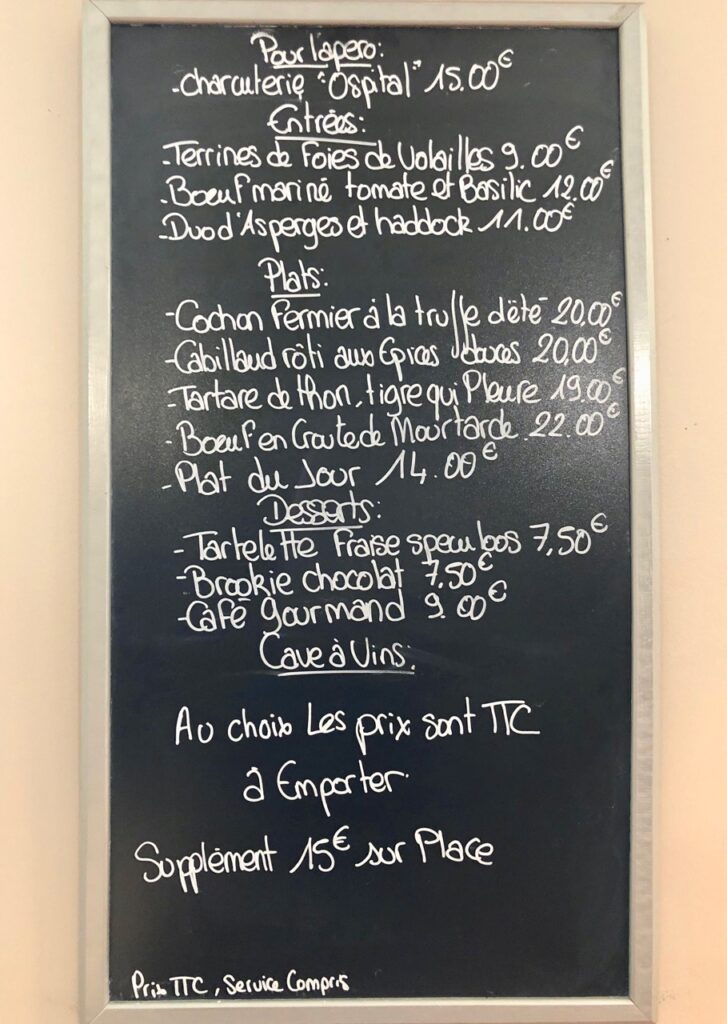 Pour lapero:
-charcuterie "Ospital" 15.00€
Entrées:
-Terrines de Foies de Volailles 9.00€
-Boeuf mariné tomate et Basilic 12.00€
-Duo d'Asperges et haddock 11.00€
Plats:
-Cochon Fermier à la truffe d'été 20,00€
-Cabillaud rôti aux Epices douces 20.00€
-Tartare de thon, tigre qui Pleure 19.00€
-Boeuf en Croute de Moutarde 22.00€
-Plat du Jour 14.00€
Desserts:
-Tartelette Fraise speculoos 7,50€
-Brookie chocolat 7,50€
-Café gourmand 9.00€
Cave à Vins:
Au choix Les prix sont TTC
à Emporter.
Supplément 15€ sur Place
Prix TTC, Service Compris